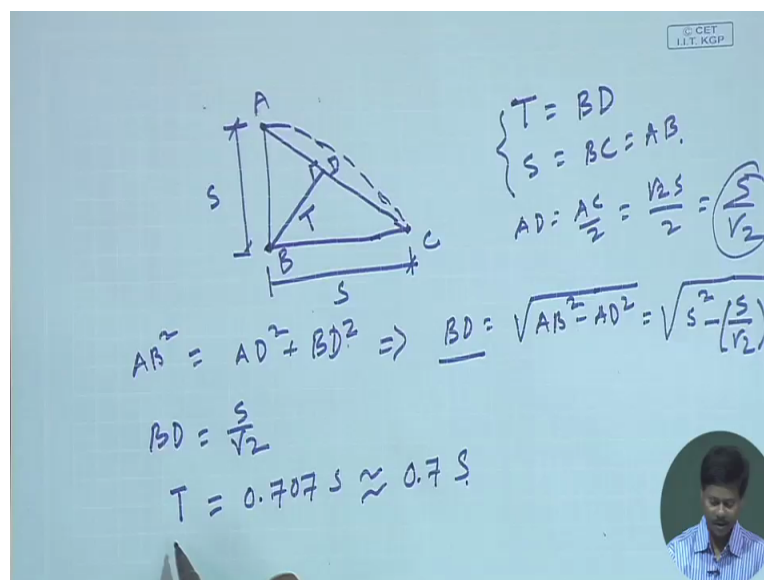 © CET
I.I.T. KGP
A
S
D
T
B
C
S
T = BD
S = BC = AB.
AD = AC/2 = √2 S/2 = S/√2
AB² = AD² + BD² => BD = √(AB² - AD²) = √(S² - (S/√2)
BD = S/√2
T = 0.707 S ≈ 0.7 S.